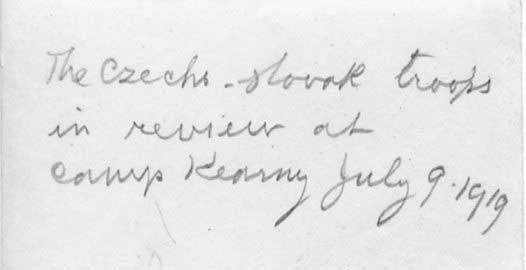 The Czecho-slovak troops
in review at
Camp Kearny July 9. 1919